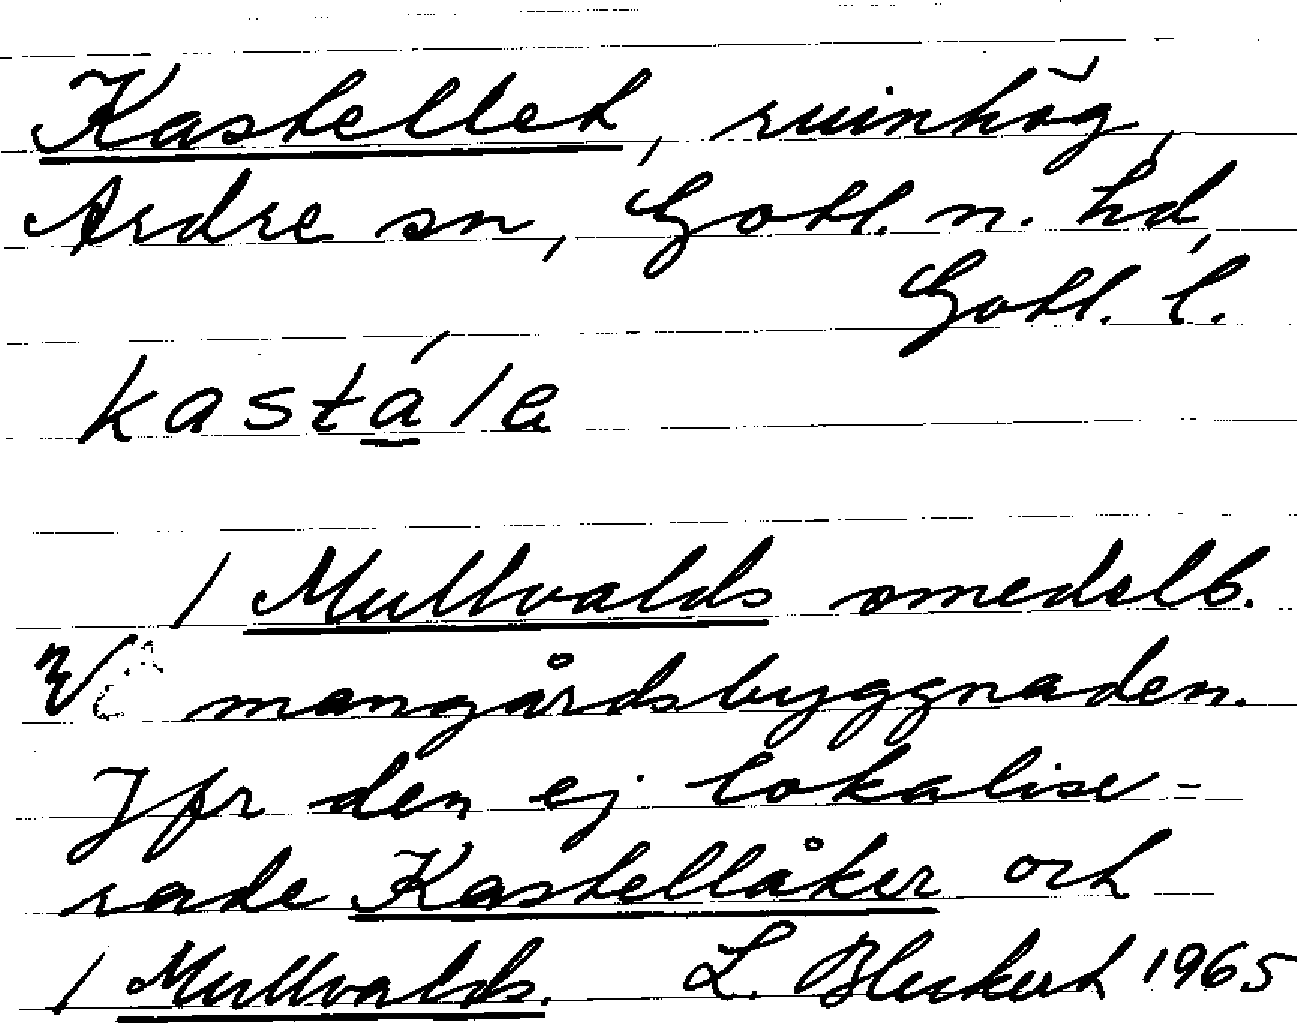 Kastellet, ruinhög,
Ardre sn, Gotl. n. hd,
Gotl. l.
kastále
1 Mullvalds omedelb.
mangårdsbyggnaden.
Jfr den ej lokalise-
rade Kastellåker och
1 Mullvalds. L. Bleckert 1965